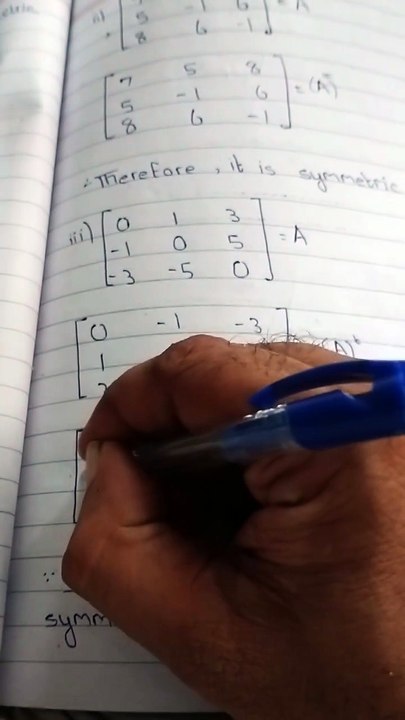 ii)
5 -1 6 = A
8 6 -1
7 5 8
5 -1 6 = (A)
8 6 -1
∴ Therefore, it is symmetric
iii) 0 1 3
-1 0 5 = A
-3 -5 0
0 -1 -3
1 (A)ᵗ
∵
symm